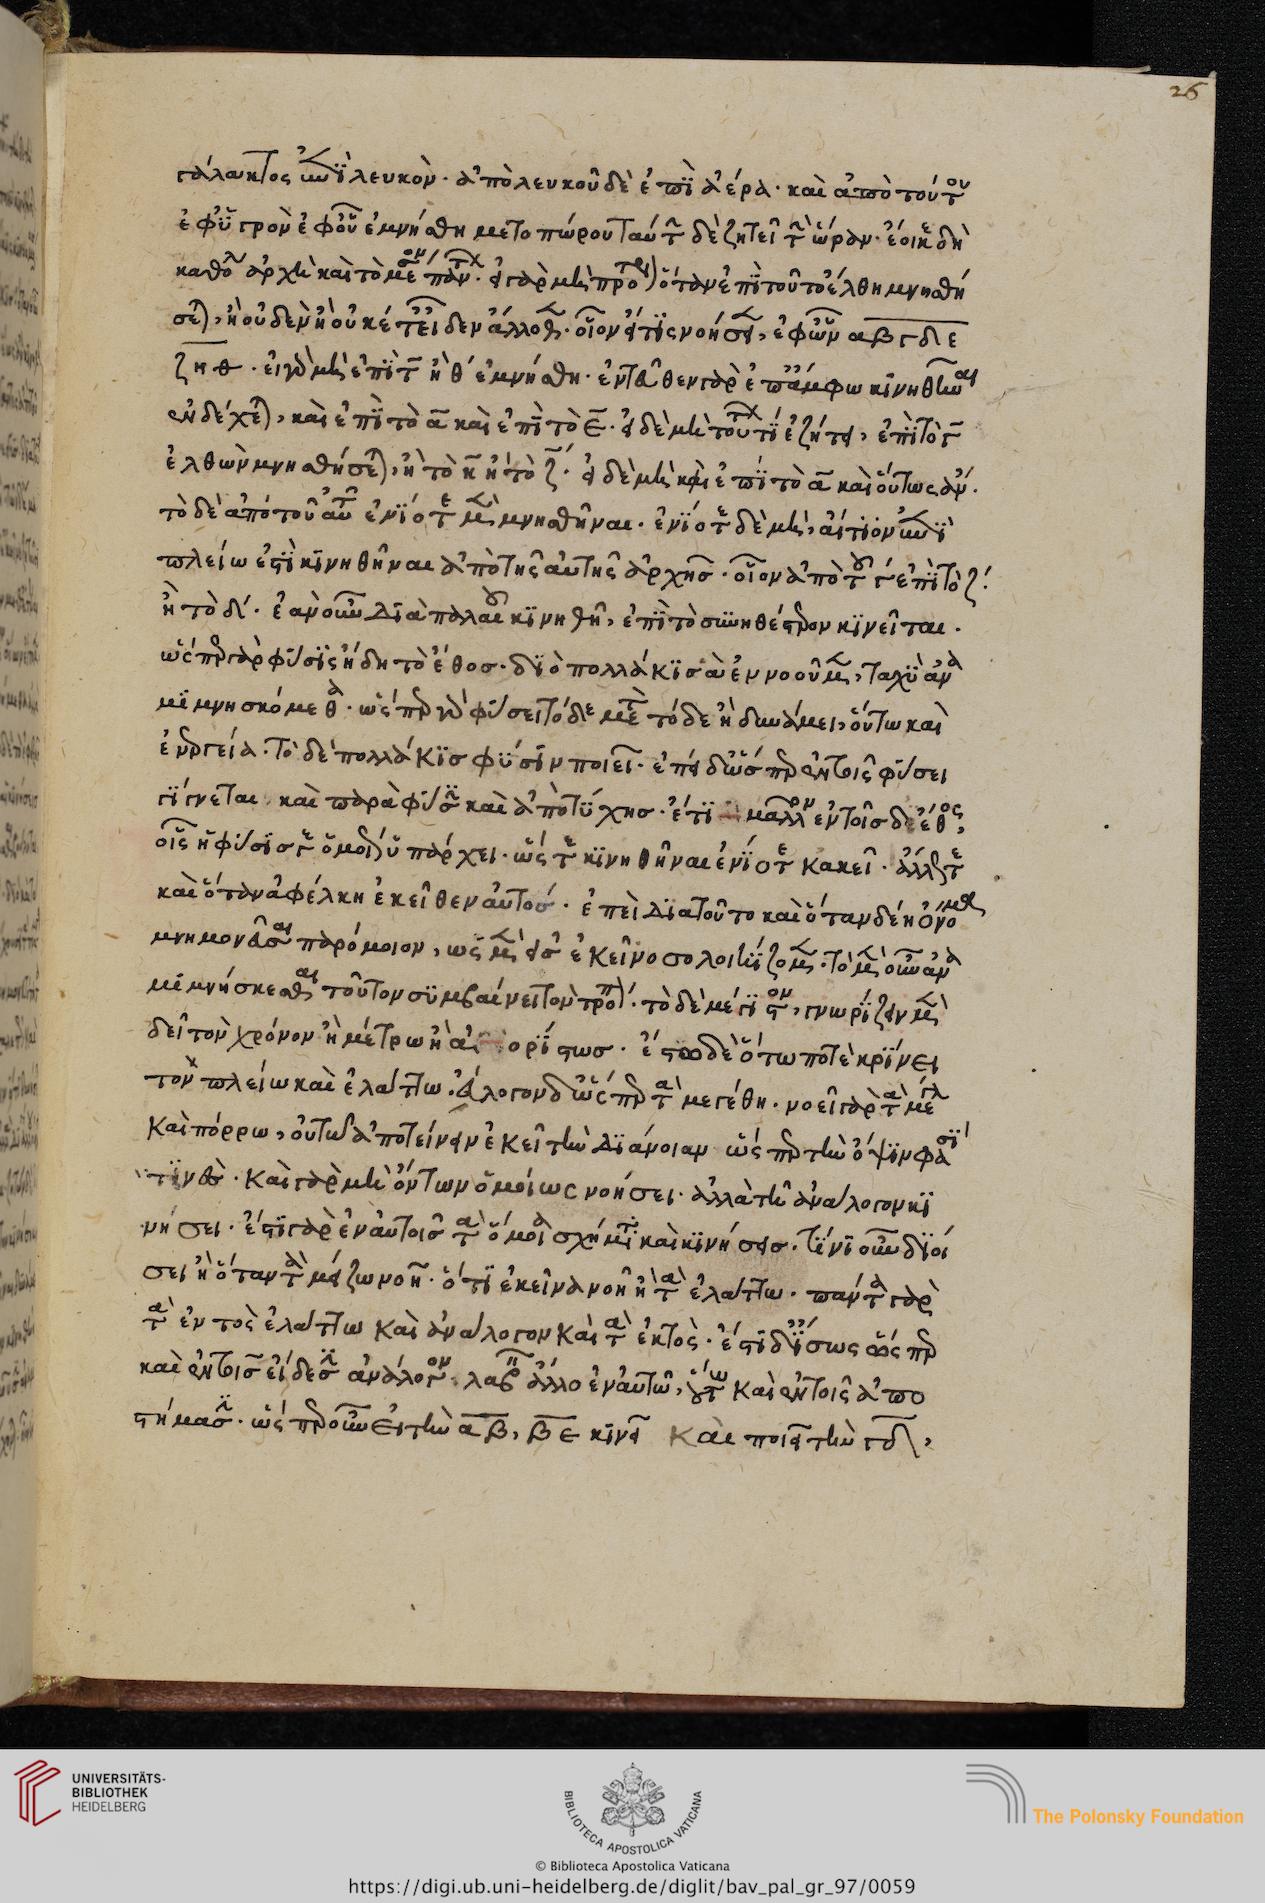 26
γάλακτος ἐπὶ λευκὸν· ἀπὸ λευκοῦ δὲ ἐπὶ ἀέρα· καὶ ἀπὸ τούτου
ἐφ' ὑγρὸν ἐφ' οὗ ἐμνήσθη μετοπώρου ταύτην δὲ ζητεῖ τὴν ὥραν· ἔοικε δὴ
καθόλου ἀρχὴ καὶ τὸ μέσον πάντων· εἰ γὰρ μὴ πρότερον ὅταν ἐπὶ τοῦτο ἔλθη μνησθή
σεται, ἢ οὐδὲν ἢ οὐκέτι εἶδεν ἄλλοθεν· οἷον εἴ τις νοήσειεν, ἐφ' ὧν α β γ δ ε
ζ η θ· εἰ γὰρ μὴ ἐπὶ τῆ ἢ θ ἐμνήσθη· ἐντεῦθεν γὰρ ἐπ' ἄμφω κινηθῆναι
ἐνδέχεται, καὶ ἐπὶ τὸ α καὶ ἐπὶ τὸ ε· εἰ δὲ μὴ τούτων τι ἐζήτει, ἐπὶ τὸ γ
ἐλθὼν μνησθήσεται, ἢ τὸ η ἢ τὸ ζ· εἰ δὲ μὴ καὶ ἐπὶ τὸ α καὶ οὕτως ἀεί·
τὸ δὲ ἀπὸ τοῦ αὐτοῦ ἐνίοτε μὲν μνησθῆναι· ἐνίοτε δὲ μὴ, αἴτιον ὅτι ἐπὶ
πλείω ἔστι κινηθῆναι ἀπὸ τῆς αὐτῆς ἀρχῆς· οἷον ἀπὸ τοῦ γ ἐπὶ τὸ ζ
ἢ τὸ δ· ἐὰν οὖν διὰ παλαιοῦ κινηθῆ, ἐπὶ τὸ συνηθέστερον κινεῖται·
ὥσπερ γὰρ φύσις ἤδη τὸ ἔθος· διὸ πολλάκις ἃ ἐννοοῦμεν, ταχὺ ἀνα
μιμνησκόμεθα· ὥσπερ γὰρ φύσει τόδε μετὰ τόδε ἢ δυνάμει, οὕτω καὶ
ἐνεργεία· τὸ δὲ πολλάκις φύσιν ποιεῖ· ἐπεὶ δ' ὥσπερ ἐν τοῖς φύσει
γίγνεται καὶ παρὰ φύσιν καὶ ἀπὸ τύχης· ἔτι μᾶλλον ἐν τοῖς δι' ἔθος,
οἷς ἡ φύσις γε ὁμοίως ὑπάρχει· ὥστε κινηθῆναι ἐνίοτε κακεῖ· ἄλλως τε
καὶ ὅταν ἀφέλκη ἐκεῖθεν αὐτός· ἐπεὶ διὰ τοῦτο καὶ ὅταν δέη ὄνομα
μνημονεῦσαι παρόμοιον, ὡς μὲν εἰς ἐκεῖνο σολοικίζομεν· τὸ μὲν οὖν ἀνα
μιμνήσκεσθαι τοῦτον συμβαίνει τὸν τρόπον· τὸ δὲ μέγιστον, γνωρίζειν μὲν
δεῖ τὸν χρόνον ἢ μέτρω ἢ ἀορίστως· ἔστω δὲ ὅτω ποτὲ κρίνει
τὸν πλείω καὶ ἐλάττω· εὔλογον δ' ὥσπερ τὰ μεγέθη· νοεῖ γὰρ τὰ μεγάλα
καὶ πόρρω, οὐ τῶ ἀποτείνειν ἐκεῖ τὴν διάνοιαν ὥσπερ τὴν ὄψιν φασί
τινες· καὶ γὰρ μὴ ὄντων ὁμοίως νοήσει· ἀλλὰ τῆ ἀνάλογον κι
νήσει· ἔστι γὰρ ἐν αὐτοῖς τὰ ὅμοια σχήματα καὶ κινήσεις· τίνι οὖν διοί
σει ἢ ὅταν τὰ μείζω νοῆ· ὅτι ἐκεῖνα νοῆ ἢ τὰ ἐλάττω· πάντα γὰρ
τὰ ἐντὸς ἐλάττω καὶ ἀνάλογον καὶ τὰ ἐκτὸς· ἔστι δ' ἴσως ὥσπερ
καὶ ἐν τοῖς εἴδεσιν ἀνάλογον λαβεῖν ἄλλο ἐν αὑτῶ, οὕτω καὶ ἐν τοῖς ἀπο
στήμασιν· ὥσπερ οὖν εἰ τὴν α β, β ε κινεῖ καὶ ποιεῖ τὴν γ δ,
UNIVERSITÄTS-
BIBLIOTHEK
HEIDELBERG
BIBLIOTECA APOSTOLICA VATICANA
The Polonsky Foundation
© Biblioteca Apostolica Vaticana
https://digi.ub.uni-heidelberg.de/diglit/bav_pal_gr_97/0059